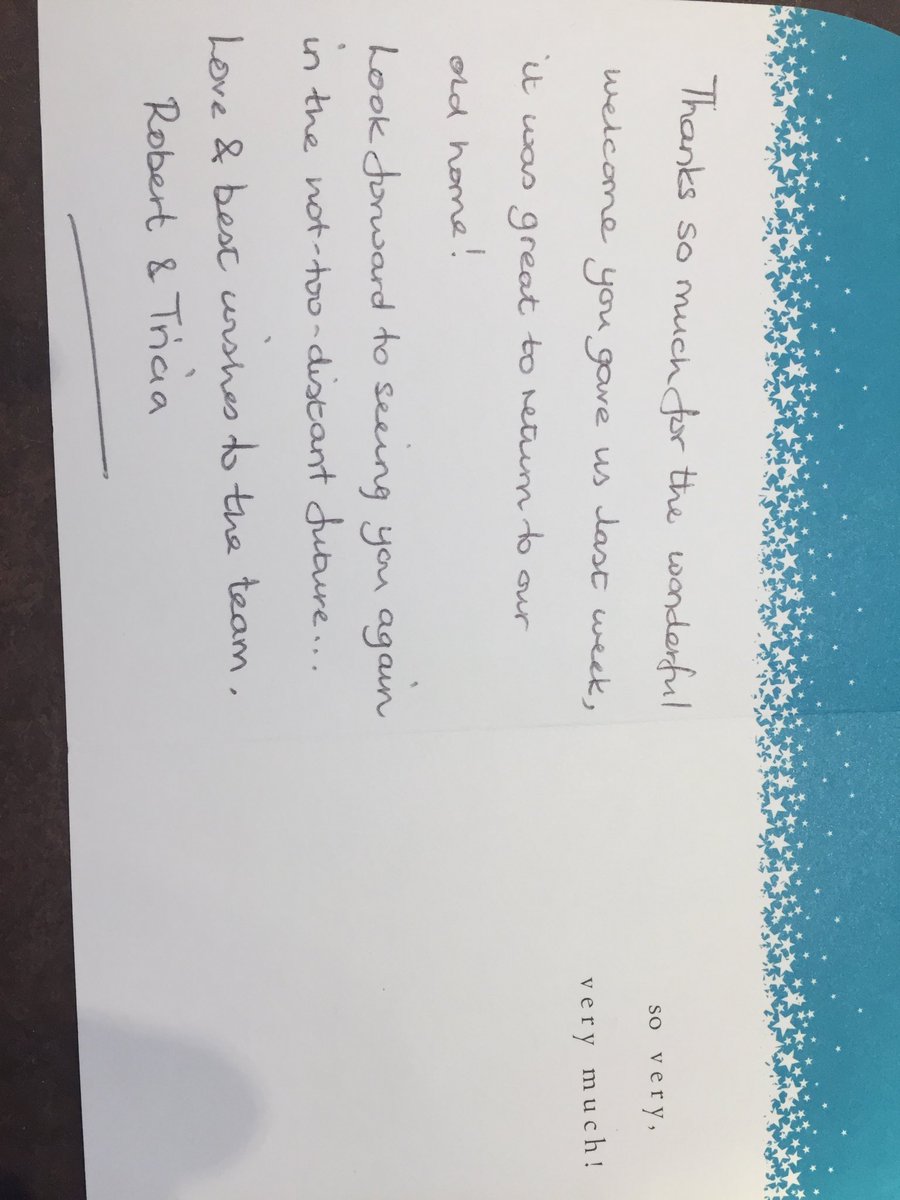 Thanks so much for the wonderful
welcome you gave us last week,
it was great to return to our
old home!
Look forward to seeing you again
in the not-too-distant future...
Love & best wishes to the team.
Robert & Tricia
so very,
very much!